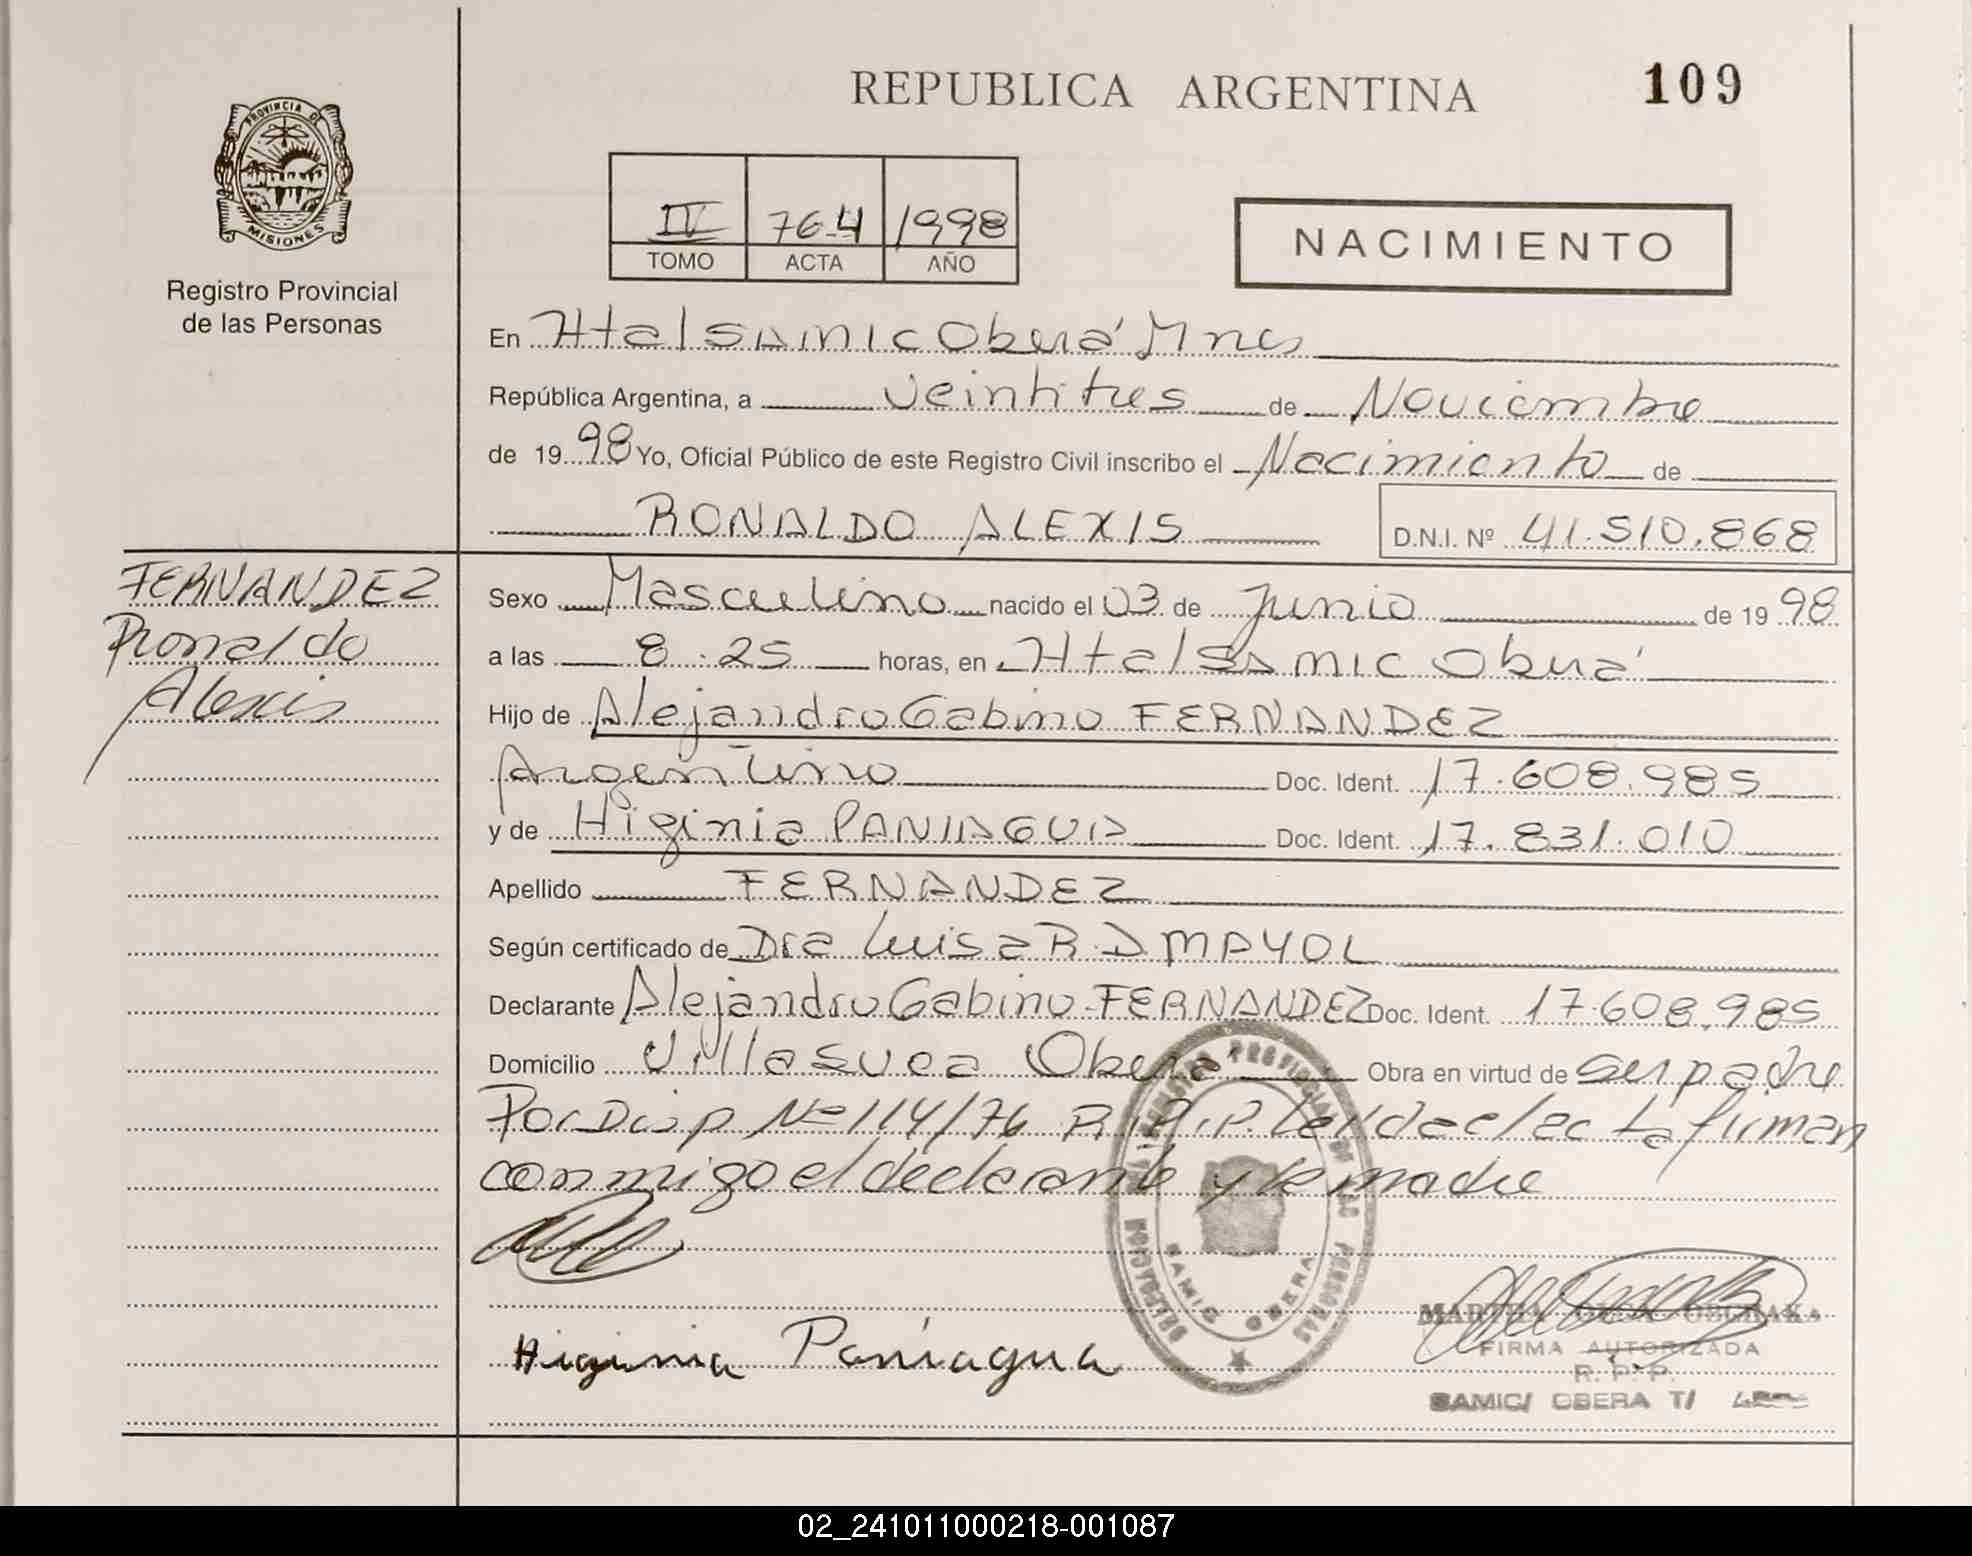 REPUBLICA ARGENTINA 109
PROVINCIA DE
MISIONES
Registro Provincial
de las Personas
IV 764 1998
TOMO ACTA AÑO
NACIMIENTO
En Htal SAMIC Oberá Mnes
República Argentina, a veintitres de Noviembre
de 1998 Yo, Oficial Público de este Registro Civil inscribo el Nacimiento de
RONALDO ALEXIS D.N.I. Nº 41.510.868
FERNANDEZ
Ronaldo
Alexis
Sexo Masculino nacido el 03 de Junio de 1998
a las 8.25 horas, en Htal SAMIC Oberá
Hijo de Alejandro Gabino FERNANDEZ
Argentino Doc. Ident. 17.608.985
y de Higinia PANIAGUA Doc. Ident. 17.831.010
Apellido FERNANDEZ
Según certificado de Dra Luisa R. D MAYOL
Declarante Alejandro Gabino FERNANDEZ Doc. Ident. 17.608.985
Domicilio Villa Svea Oberá Obra en virtud de ser padre
Por Disp Nº 114/76 R.P.P. Leida el acta firman
conmigo el declarante y la madre
REGISTRO PROVINCIAL DE LAS PERSONAS
DELEGACION
SAMIC OBERA
Higinia Paniagua
MARTHA
FIRMA AUTORIZADA
R. P. P.
SAMIC/ OBERA T/
02_241011000218-001087